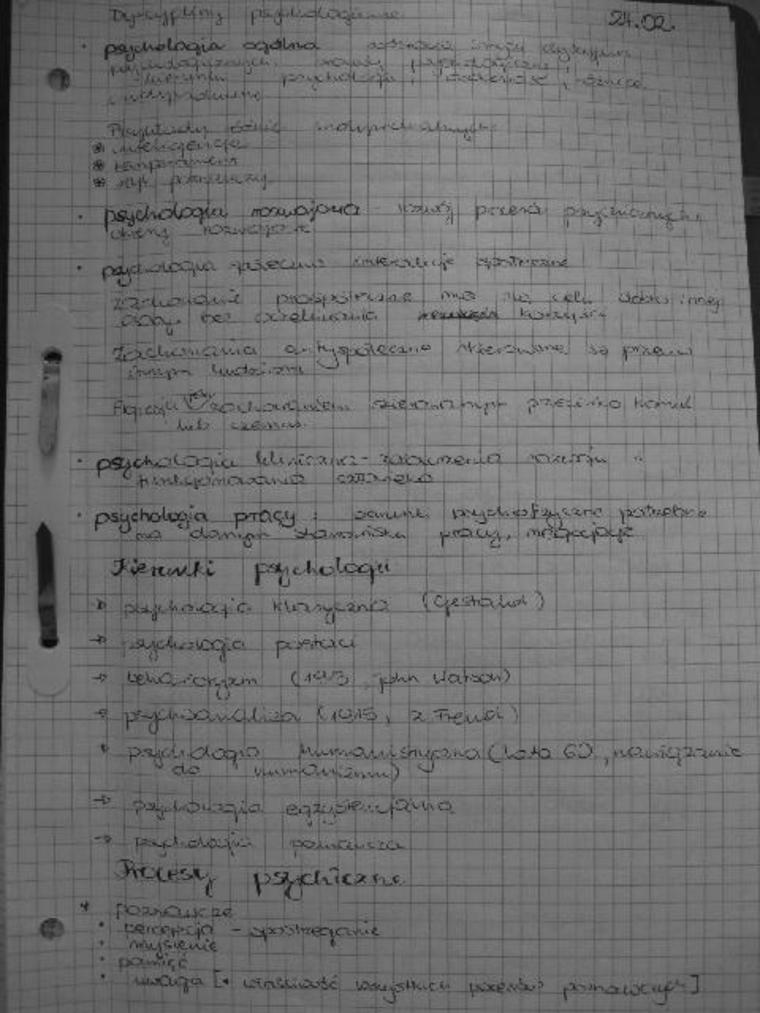 Dyscypliny psychologiczne
24.02.
psychologia ogólna
psychologicznych
psychologii
indywidualne
Przykłady różnic indywidualnych:
inteligencja
temperament
styl poznawczy
psychologia rozwojowa - rozwój psychicznych,
okresy rozwojowe
psychologia społeczna interakcje społeczne
zachowanie prospołeczne ma na celu dobro innej
osoby bez oczekiwania korzyści
Zachowania antyspołeczne skierowane są przeciw
innym ludziom
Agresja zachowaniem skierowanym przeciwko komuś
lub czemuś.
psychologia kliniczna - zaburzenia rozwoju i
funkcjonowania człowieka
psychologia pracy: warunki psychofizyczne potrzebne
na danym stanowisku pracy, negocjacje
Kierunki psychologii
→ psychologia klasyczna (Gestalt)
→ psychologia postaci
→ behawioryzm (1913, John Watson)
→ psychoanaliza (1915, Z Freud)
psychologia humanistyczna (lata 60, nawiązanie
do humanizmu)
→ psychologia egzystencjalna
→ psychologia poznawcza
Procesy psychiczne
* poznawcze
• percepcja - spostrzeganie
• myślenie
• pamięć
• uwaga [* właściwość wszystkich procesów poznawczych]